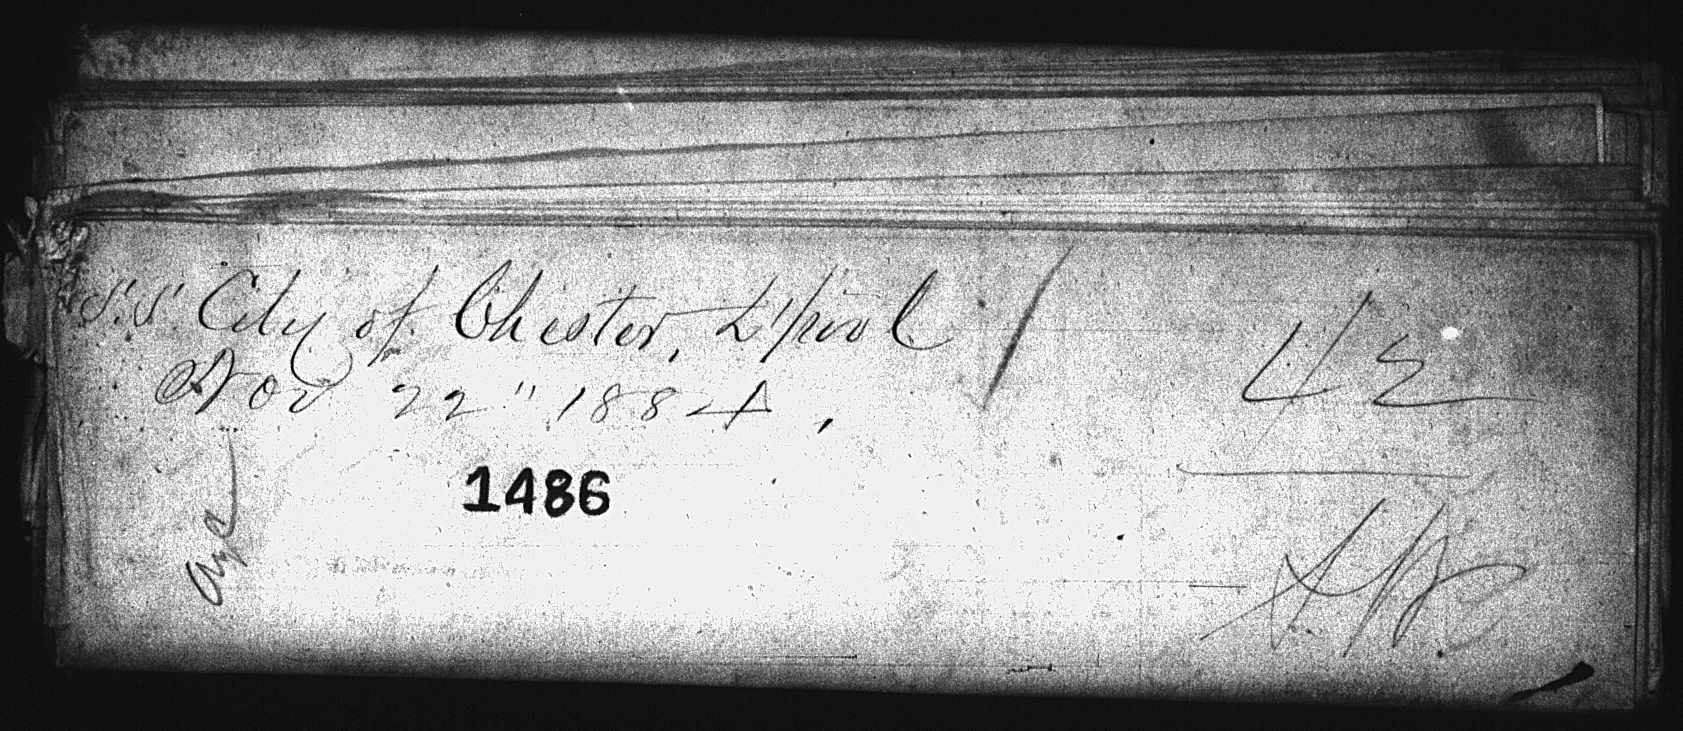 S.S. City of Chester, L'pool
Nov 22" 1884,
1486
42